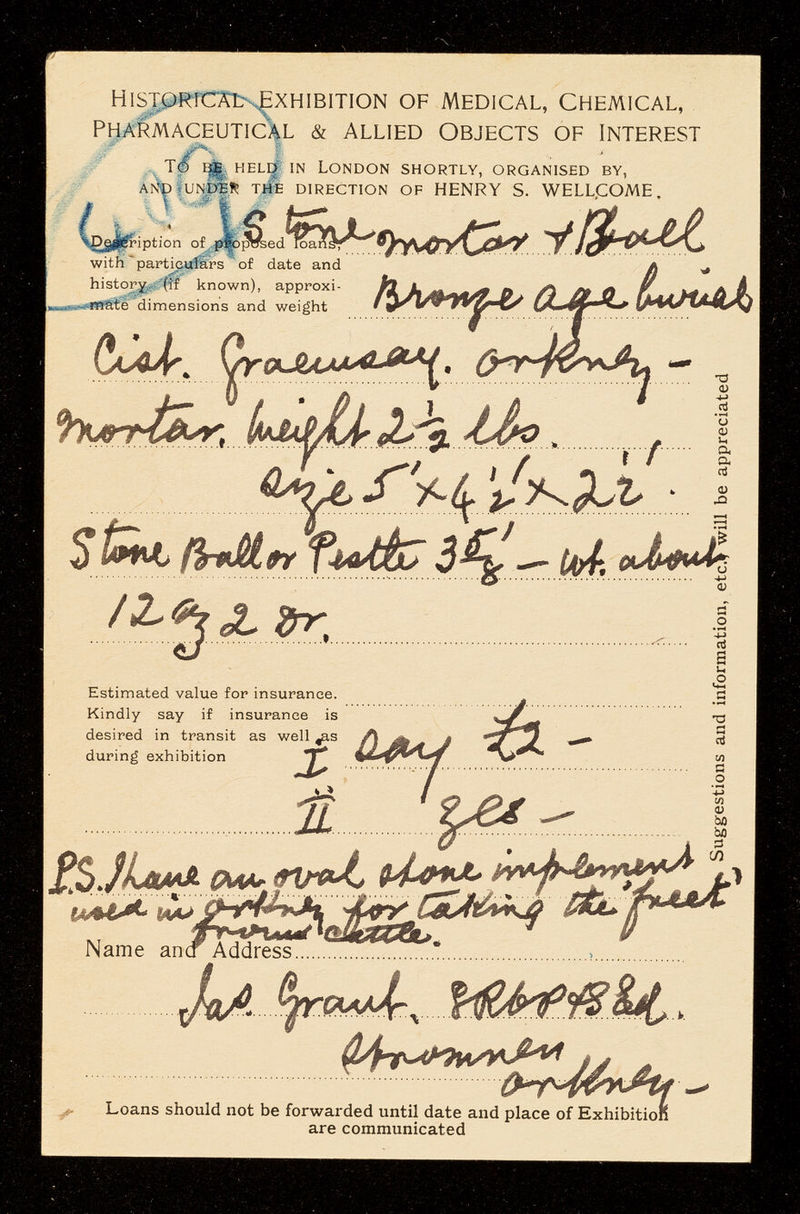 HISTORICAL EXHIBITION OF MEDICAL, CHEMICAL,
PHARMACEUTICAL & ALLIED OBJECTS OF INTEREST
TO BE HELD IN LONDON SHORTLY, ORGANISED BY,
AND UNDER THE DIRECTION OF HENRY S. WELLCOME.
409
Description of proposed loans, Stone mortar & Ball
with particulars of date and
history (if known), approxi- Bronze age burial
mate dimensions and weight
Cist. Graemsay. Orkney -
Mortar. Weight 2 1/2 lbs.
size 5' x 4 1/2' x 2 1/2'.
Stone Ball or Pestle 3 5/8' - wt. about
12 oz 2 Dr.
Suggestions and information, etc., will be appreciated
Estimated value for insurance.
Kindly say if insurance is
desired in transit as well as
during exhibition I say £2 -
II yes -
P.S. I have an oval stone implement
used in Orkney for taking the 'freet'
from cattle.
Name and Address
Jas. Grant, LRCP & S Ed.
Stromness
Orkney -
Loans should not be forwarded until date and place of Exhibition
are communicated